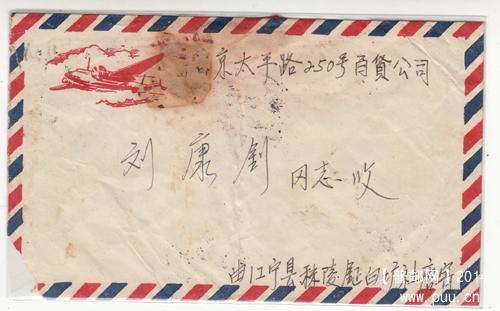 京太平路250号百貨公司
刘康釗同志收
由江宁县秣陵
【普邮网】2014
www.puu.cn